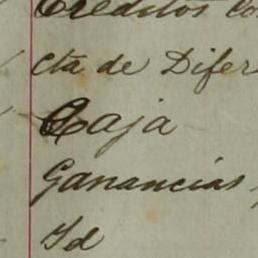 Creditos Co
Cta de Difer
Caja
Ganancias
Id